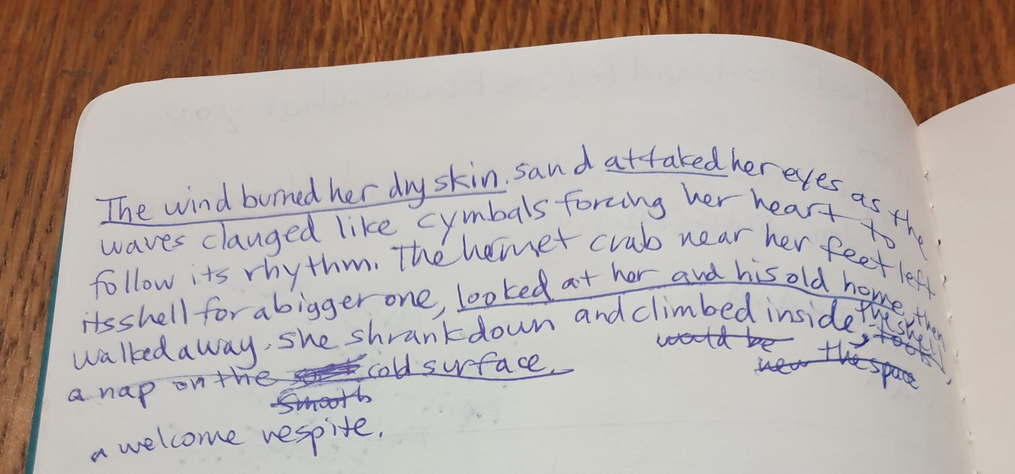 The wind burned her dry skin. sand attaked her eyes as the
waves clanged like cymbals forcing her heart to
follow its rhythm. The hermet crab near her feet left
its shell for a bigger one, looked at her and his old home, then
walked away. She shrank down and climbed inside the shell,
took
would be
a nap on the cold surface.
new the space
Smooth
a welcome respite.